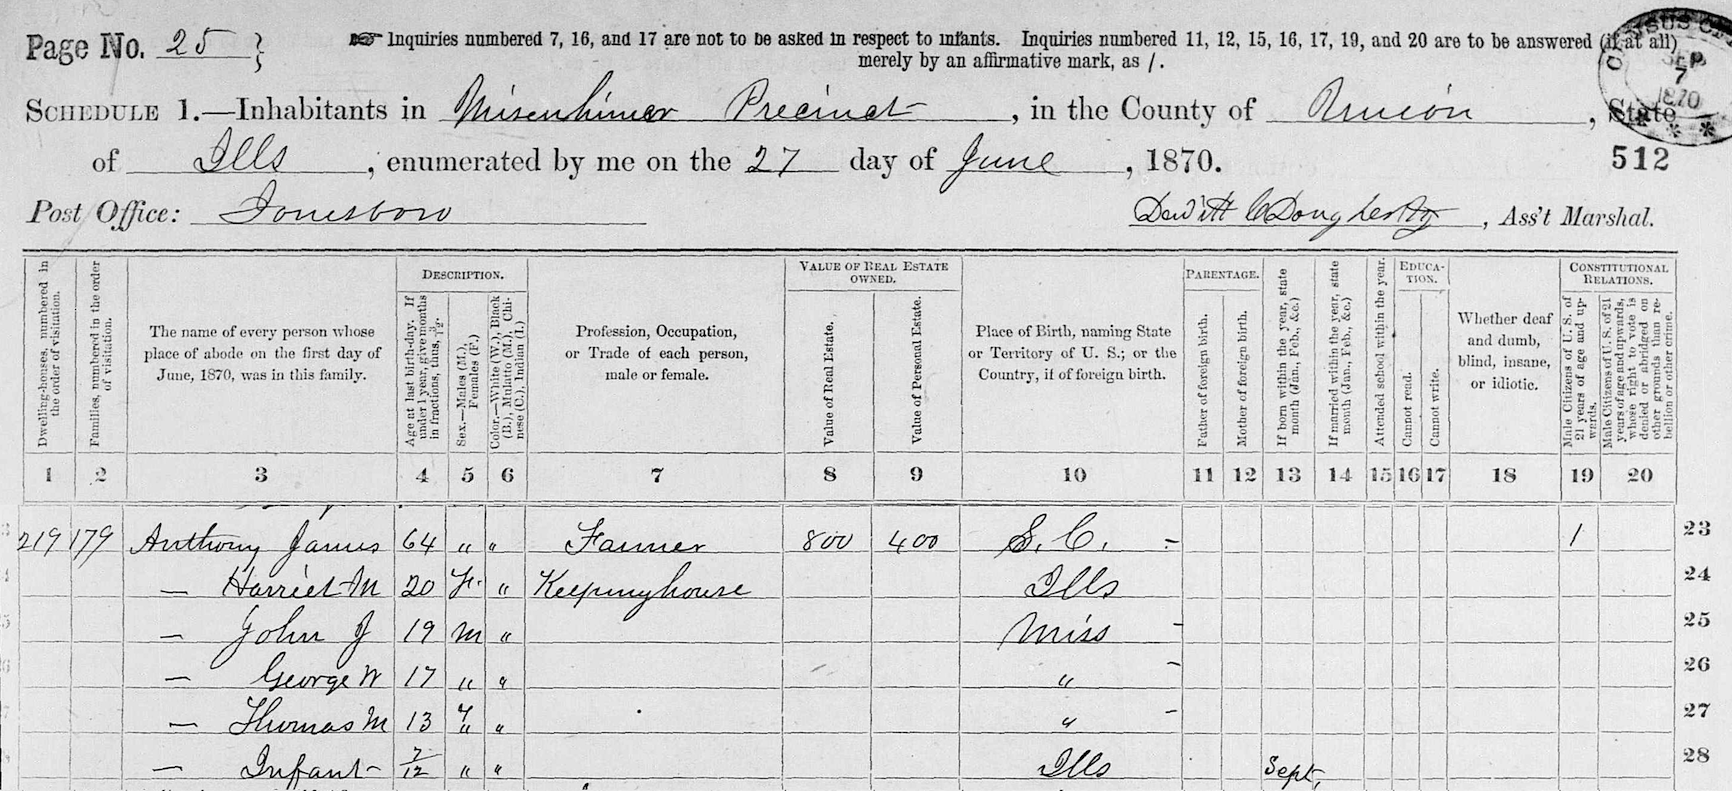 Page No. 25
☞ Inquiries numbered 7, 16, and 17 are not to be asked in respect to infants. Inquiries numbered 11, 12, 15, 16, 17, 19, and 20 are to be answered (if at all)
merely by an affirmative mark, as /.
SEP 7 1870
SCHEDULE 1.—Inhabitants in Misenhimer Precinct, in the County of Union, State
of Ills, enumerated by me on the 27 day of June, 1870.
512
Post Office: Jonesboro
Dewitt C Dougherty, Ass't Marshal.
Dwelling-houses, numbered in the order of visitation.
Families, numbered in the order of visitation.
The name of every person whose place of abode on the first day of June, 1870, was in this family.
DESCRIPTION.
Age at last birth-day. If under 1 year, give months in fractions, thus, 3/12.
Sex.—Males (M.), Females (F.)
Color.—White (W.), Black (B.), Mulatto (M.), Chinese (C.), Indian (I.)
Profession, Occupation, or Trade of each person, male or female.
VALUE OF REAL ESTATE OWNED.
Value of Real Estate.
Value of Personal Estate.
Place of Birth, naming State or Territory of U. S.; or the Country, if of foreign birth.
PARENTAGE.
Father of foreign birth.
Mother of foreign birth.
If born within the year, state month (Jan., Feb., &c.)
If married within the year, state month (Jan., Feb., &c.)
Attended school within the year.
EDUCATION.
Cannot read.
Cannot write.
Whether deaf and dumb, blind, insane, or idiotic.
CONSTITUTIONAL RELATIONS.
Male Citizens of U. S. of 21 years of age and upwards.
Male Citizens of U. S. of 21 years of age and upwards, whose right to vote is denied or abridged on other grounds than rebellion or other crime.
1 2 3 4 5 6 7 8 9 10 11 12 13 14 15 16 17 18 19 20
219 179 Anthony James 64 " " Farmer 800 400 S. C. - 1 23
— Harriet M 20 F. " Keeping house Ills 24
— John J 19 M " Miss - 25
— George W 17 " " " - 26
— Thomas M 13 " " " - 27
— Infant 7/12 " " Ills Sept, 28